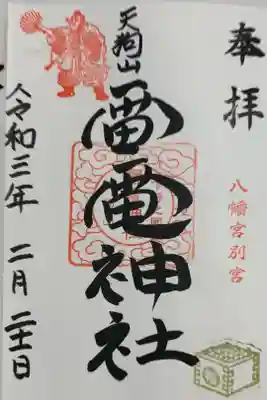 奉拝
八幡宮別宮
天狗山
雷電神社
令和三年 二月 二十二日